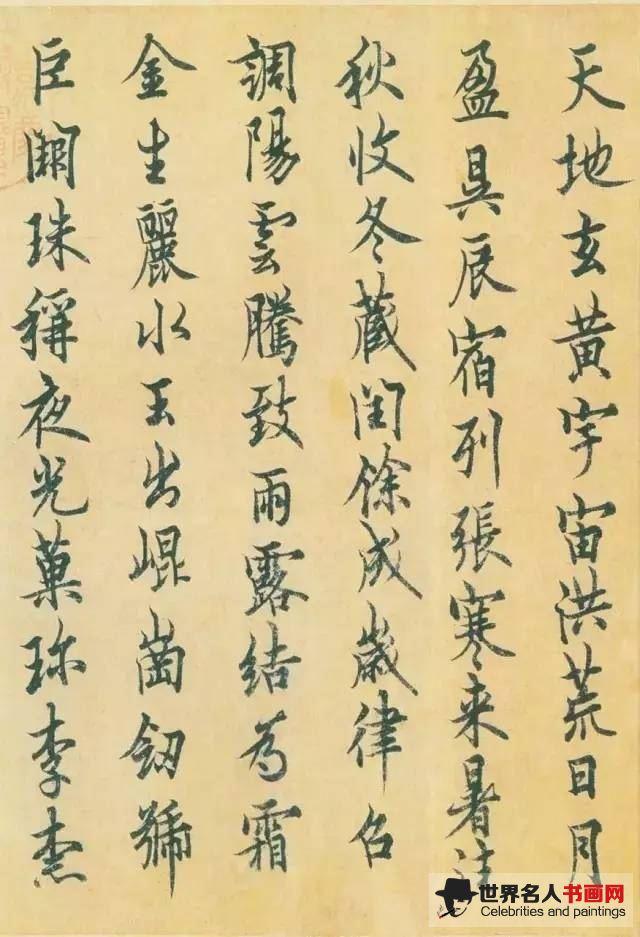 天地玄黃宇宙洪荒日月
盈昃辰宿列張寒来暑往
秋收冬藏閏餘成歲律召
調陽雲騰致雨露結為霜
金生麗水玉出崐崗劒號
巨闕珠稱夜光菓珎李柰
世界名人书画网
Celebrities and paintings